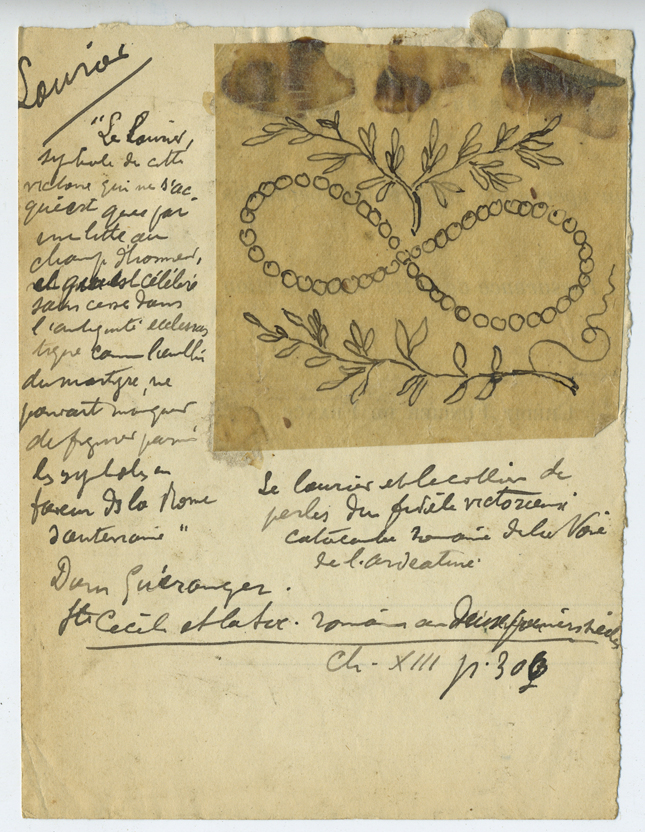 Laurier
"Le laurier,
symbole de cette
victoire qui ne s'ac
quiert que par
une lutte au
champ d'honneur,
et qui est célébré
sans cesse dans
l'antiquité ecclesias
tique comme l'emblème
du martyre, ne
pouvait manquer
de figurer parmi
les symboles en
faveur ds la Rome
souterraine"
Le laurier et le collier de
perles du fidèle victorieux
catacombe romaine de la Voie
de l'ardeatine
Dom Guéranger.
Ste Cécile et la soc. romaine aux deux premiers siècles
Ch. XIII p. 303